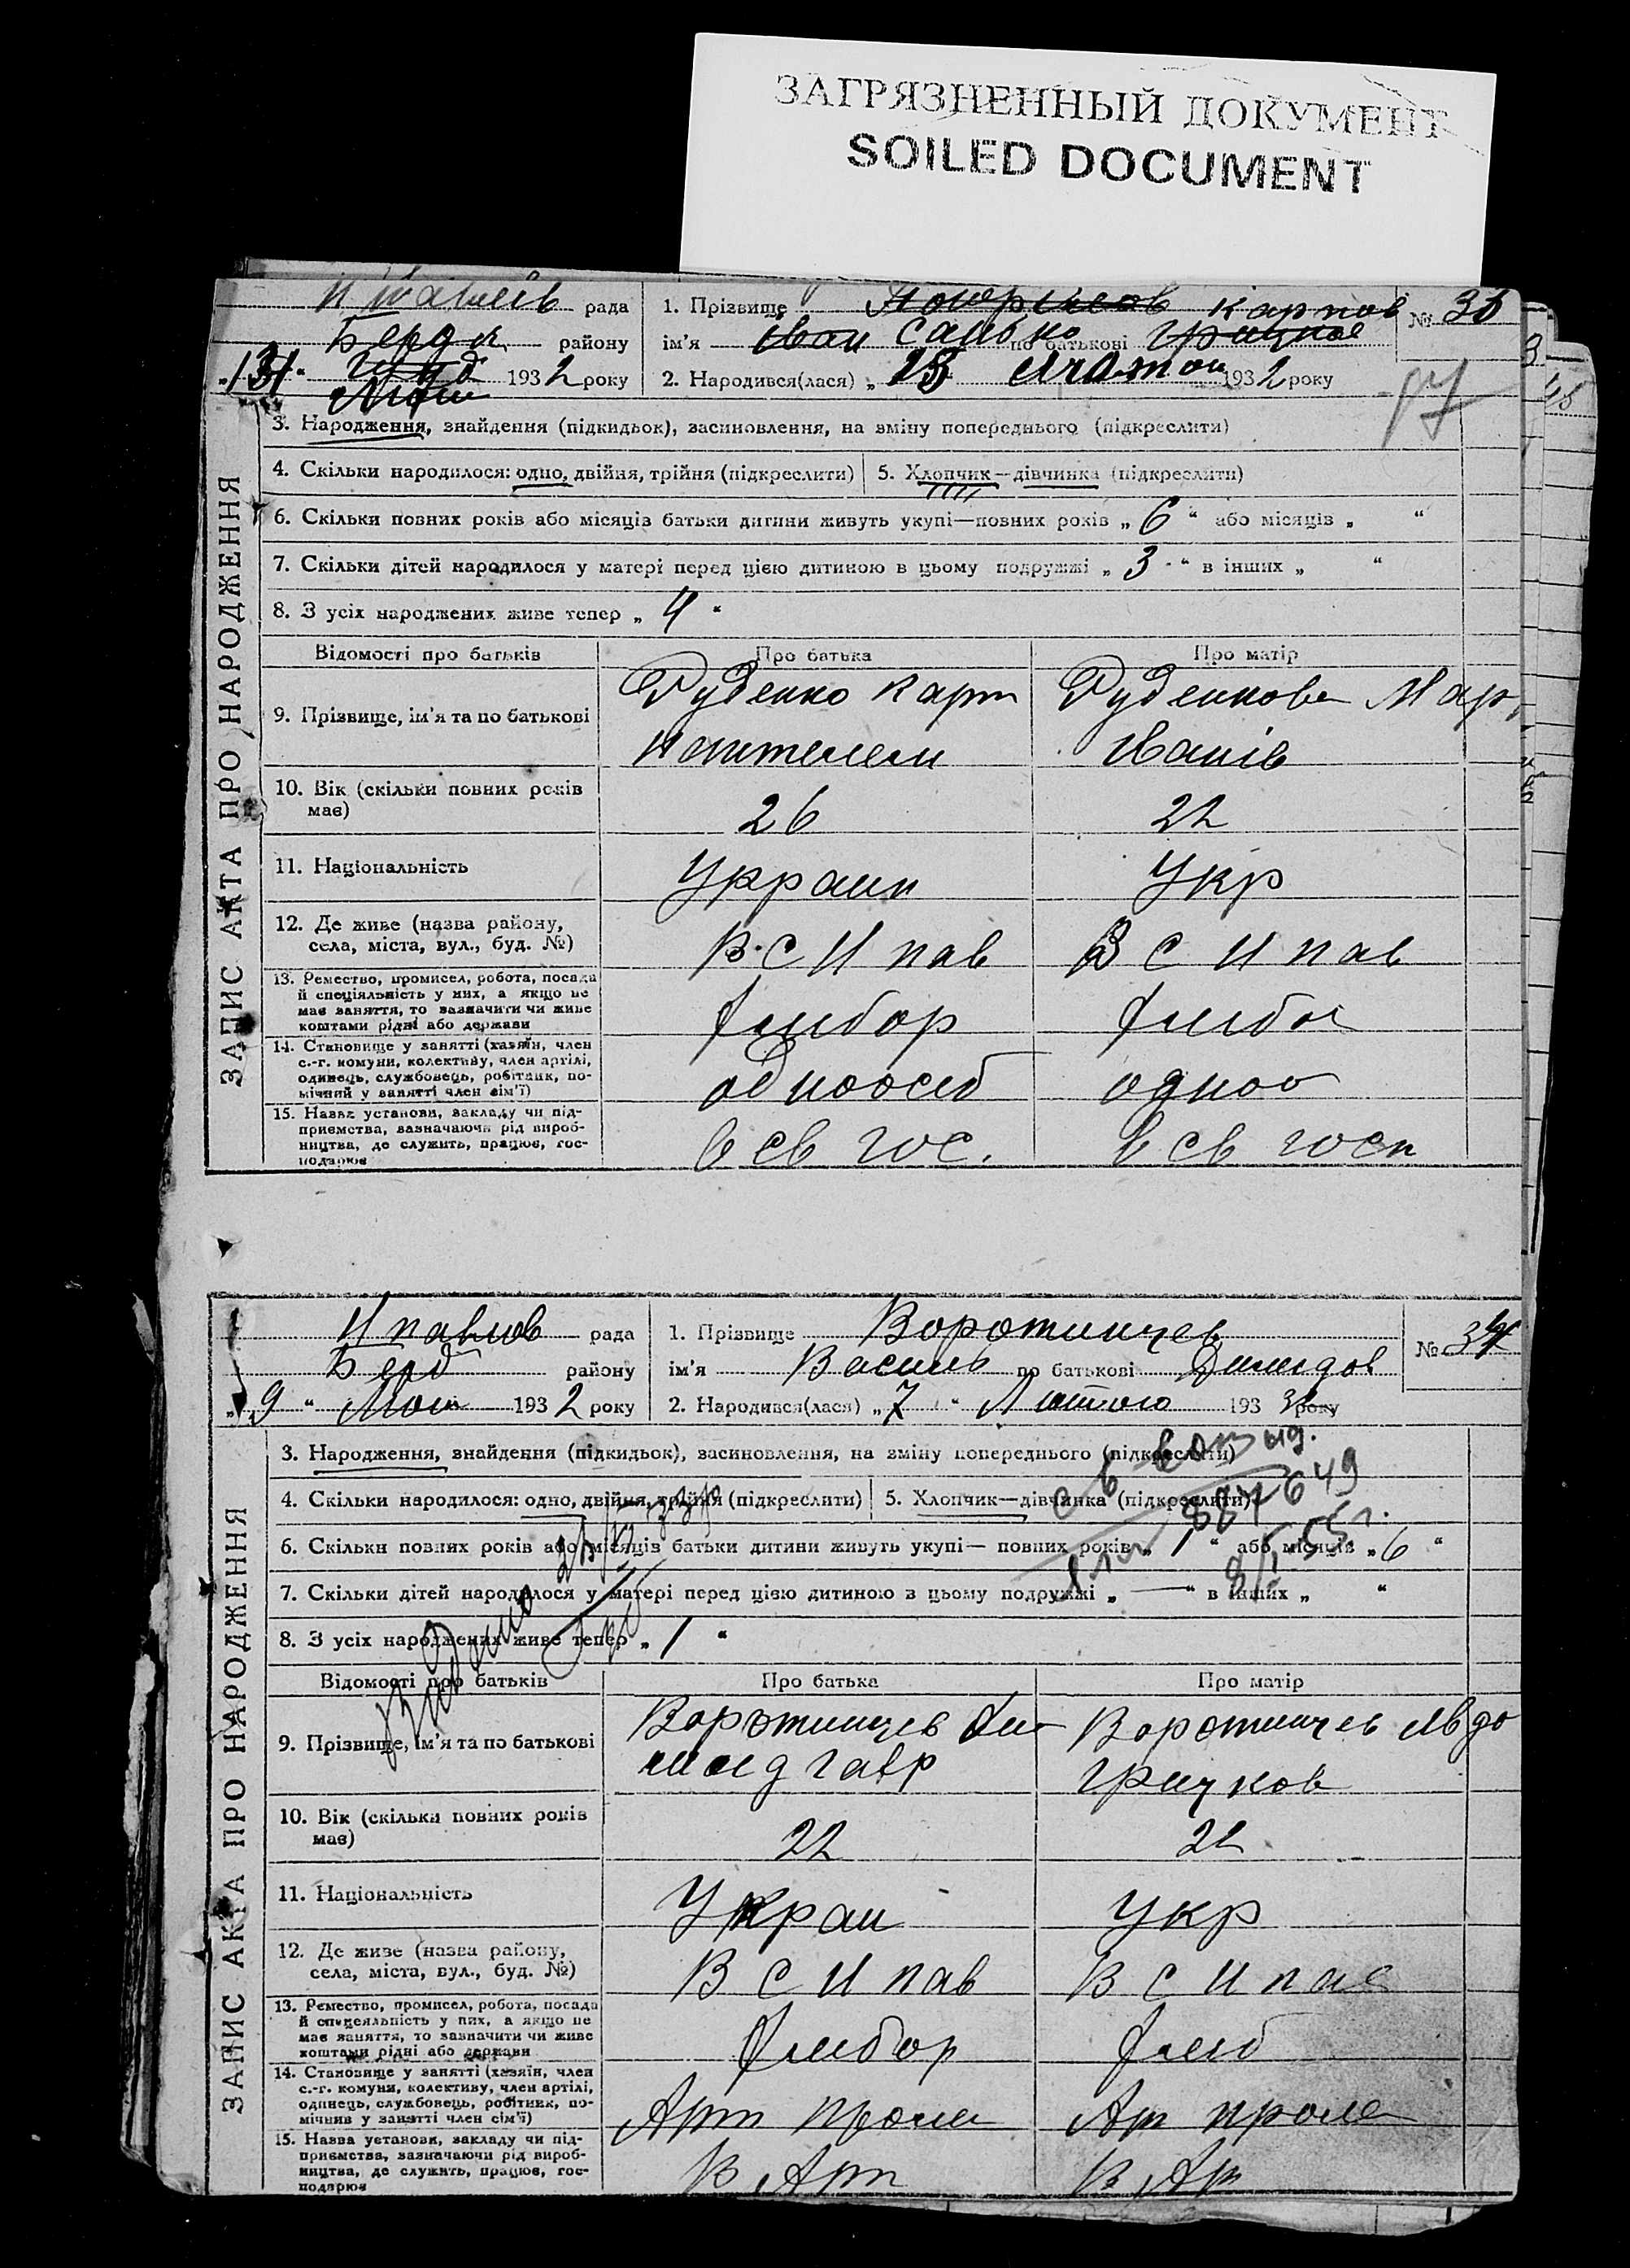 ЗАГРЯЗНЕННЫЙ ДОКУМЕНТ
SOILED DOCUMENT
рада
району
193 2 року
1. Прізвище Карпов
ім'я Иван по батькові
2. Народився(лася) „ 193 2 року
№ 36
3. Народження, знайдення (підкидьок), засиновлення, на зміну попереднього (підкреслити)
4. Скільки народилося: одно, двійня, трійня (підкреслити)
5. Хлопчик—дівчинка (підкреслити)
6. Скільки повних років або місяців батьки дитини живуть укупі—повних років „ 6 “ або місяців „ “
7. Скільки дітей народилося у матері перед цією дитиною в цьому подружжі „ 3 “ в інших „ “
8. З усіх народжених живе тепер „ 4 “
Відомості про батьків
Про батька
Про матір
9. Прізвище, ім'я та по батькові
Руденко Карп
Руденкова Мар
Иванів
10. Вік (скільки повних років
має)
26
22
11. Національність
Украин
Укр
12. Де живе (назва району,
села, міста, вул., буд. №)
В С И пав
В С И пав
13. Ремество, промисел, робота, посада
й спеціяльність у них, а якщо не
має заняття, то зазначити чи живе
коштами рідні або держави
хлибор
хлибо
14. Становище у занятті (хазяїн, член
с.-г. комуни, колективу, член артілі,
одинець, службовець, робітник, по-
мічний у занятті член сім'ї)
одноосіб
одноо
15. Назва установи, закладу чи під-
приємства, зазначаючи рід вироб-
ництва, де служить, працює, гос-
подарює
в св гос.
в св госп
ЗАПИС АКТА ПРО НАРОДЖЕННЯ
И павлов рада
Берд району
„ 9 “ 193 2 року
1. Прізвище Воротинцев
ім'я Василь по батькові Диомидов
2. Народився(лася) „ 7 “ Лютого 193 року
№ 34
3. Народження, знайдення (підкидьок), засиновлення, на зміну попереднього (підкреслити)
4. Скільки народилося: одно, двійня, трійня (підкреслити)
5. Хлопчик—дівчинка (підкреслити)
6. Скільки повних років або місяців батьки дитини живуть укупі— повних років „ 1 “ або місяців „ 6 “
7. Скільки дітей народилося у матері перед цією дитиною в цьому подружжі „ — “ в інших „ “
8. З усіх народжених живе тепер „ 1 “
Відомості про батьків
Про батька
Про матір
9. Прізвище, ім'я та по батькові
Воротинцев Ди-
мид Гавр
Воротинцев Явдо
Гричков
10. Вік (скільки повних років
має)
22
22
11. Національність
Украи
Укр
12. Де живе (назва району,
села, міста, вул., буд. №)
В С И пав
В С И пав
13. Ремество, промисел, робота, посада
й спецеяльність у них, а якщо не
має заняття, то зазначити чи живе
коштами рідні або держави
хлибор
хлиб
14. Становище у занятті (хазяїн, член
с.-г. комуни, колективу, член артілі,
одинець, службовець, робітник, по-
мічний у занятті член сім'ї)
Арт проле
Ар проле
15. Назва установи, закладу чи під-
приємства, зазначаючи рід вироб-
ництва, де служить, працює, гос-
подарює
В Арт
В Ар
ЗАПИС АКТА ПРО НАРОДЖЕННЯ